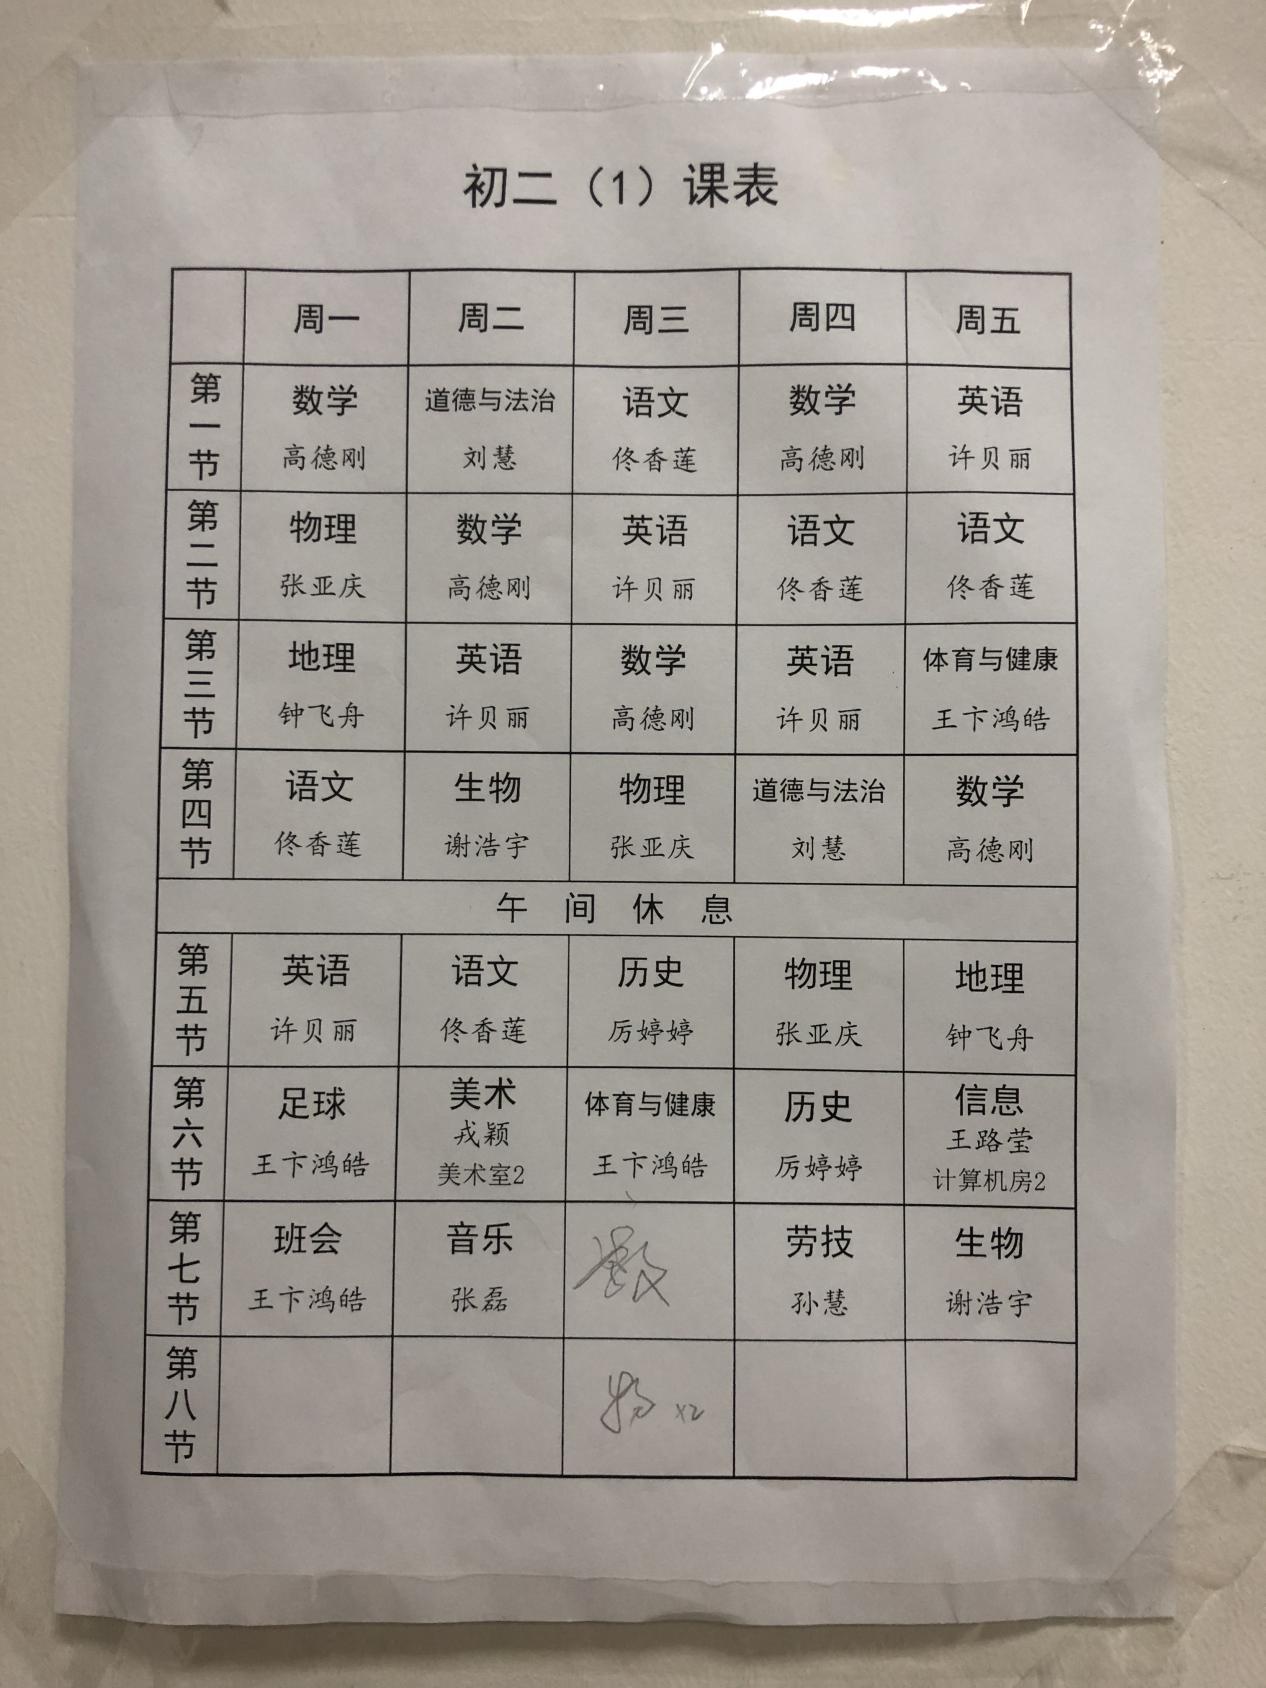 初二（1）课表
周一 周二 周三 周四 周五
第一节 数学 道德与法治 语文 数学 英语
高德刚 刘慧 佟香莲 高德刚 许贝丽
第二节 物理 数学 英语 语文 语文
张亚庆 高德刚 许贝丽 佟香莲 佟香莲
第三节 地理 英语 数学 英语 体育与健康
钟飞舟 许贝丽 高德刚 许贝丽 王卞鸿皓
第四节 语文 生物 物理 道德与法治 数学
佟香莲 谢浩宇 张亚庆 刘慧 高德刚
午间休息
第五节 英语 语文 历史 物理 地理
许贝丽 佟香莲 厉婷婷 张亚庆 钟飞舟
第六节 足球 美术 体育与健康 历史 信息
王卞鸿皓 戎颖 王卞鸿皓 厉婷婷 王路莹
美术室2 计算机房2
第七节 班会 音乐 数 劳技 生物
王卞鸿皓 张磊 孙慧 谢浩宇
第八节 物 x2